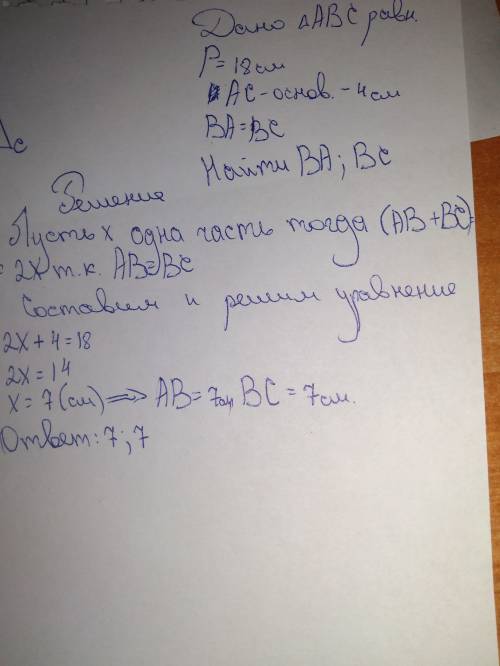 Дано ΔABC равн.
P=18см
AC-основ.-4см
BA=BC
Найти BA; BC
C
Решение
Пусть x одна часть тогда (AB+BC)=
= 2x т.к. AB=BC
Составим и решим уравнение
2x+4=18
2x=14
x=7(см) => AB=7см, BC=7см.
Ответ: 7; 7